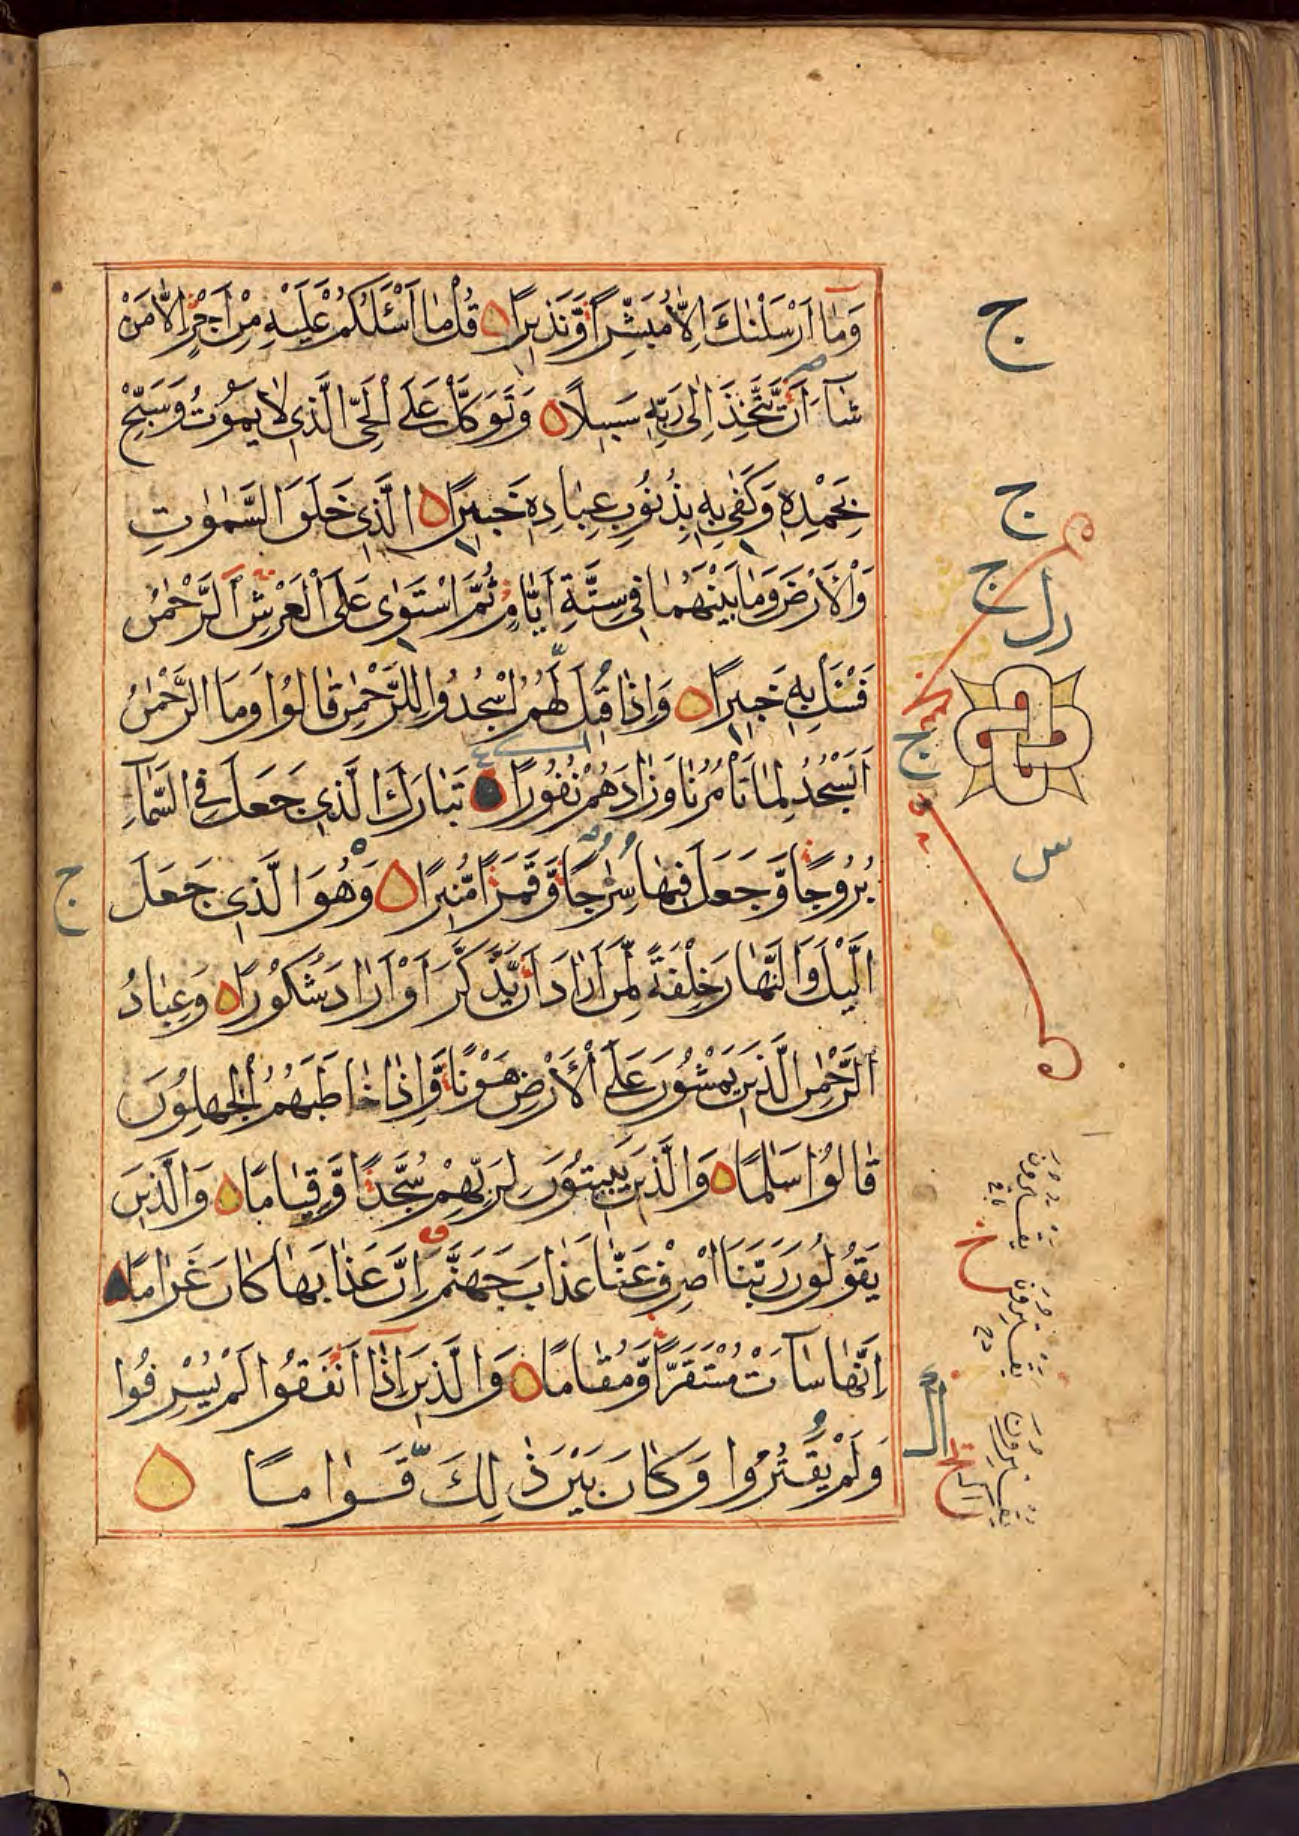 وَمَآ اَرْسَلْنٰكَ اِلَّا مُبَشِّرًا وَّنَذِيرًا قُلْ مَا اَسْـَٔلُكُمْ عَلَيْهِ مِنْ اَجْرٍ اِلَّا مَنْ
شَآءَ اَنْ يَّتَّخِذَ اِلٰى رَبِّهٖ سَبِيلًا وَتَوَكَّلْ عَلَى الْحَىِّ الَّذِى لَا يَمُوْتُ وَسَبِّحْ
بِحَمْدِهٖ وَكَفٰى بِهٖ بِذُنُوْبِ عِبَادِهٖ خَبِيرًا الَّذِى خَلَقَ السَّمٰوٰتِ
وَالْاَرْضَ وَمَا بَيْنَهُمَا فِى سِتَّةِ اَيَّامٍ ثُمَّ اسْتَوٰى عَلَى الْعَرْشِ اَلرَّحْمٰنُ
فَسْـَٔلْ بِهٖ خَبِيرًا وَاِذَا قِيلَ لَهُمُ اسْجُدُوا لِلرَّحْمٰنِ قَالُوا وَمَا الرَّحْمٰنُ
اَنَسْجُدُ لِمَا تَاْمُرُنَا وَزَادَهُمْ نُفُوْرًا تَبَارَكَ الَّذِى جَعَلَ فِى السَّمَآءِ
بُرُوْجًا وَّجَعَلَ فِيهَا سِرٰجًا وَّقَمَرًا مُّنِيرًا وَهُوَ الَّذِى جَعَلَ
الَّيْلَ وَالنَّهَارَ خِلْفَةً لِّمَنْ اَرَادَ اَنْ يَّذَّكَّرَ اَوْ اَرَادَ شُكُوْرًا وَعِبَادُ
الرَّحْمٰنِ الَّذِينَ يَمْشُوْنَ عَلَى الْاَرْضِ هَوْنًا وَّاِذَا خَاطَبَهُمُ الْجٰهِلُوْنَ
قَالُوْا سَلٰمًا وَالَّذِينَ يَبِيتُوْنَ لِرَبِّهِمْ سُجَّدًا وَّقِيَامًا وَالَّذِينَ
يَقُوْلُوْنَ رَبَّنَا اصْرِفْ عَنَّا عَذَابَ جَهَنَّمَ اِنَّ عَذَابَهَا كَانَ غَرَامًا
اِنَّهَا سَآءَتْ مُسْتَقَرًّا وَّمُقَامًا وَالَّذِينَ اِذَآ اَنْفَقُوا لَمْ يُسْرِفُوا
وَلَمْ يَقْتُرُوا وَكَانَ بَيْنَ ذٰلِكَ قَوَامًا
ج
ج
ج
س
ج